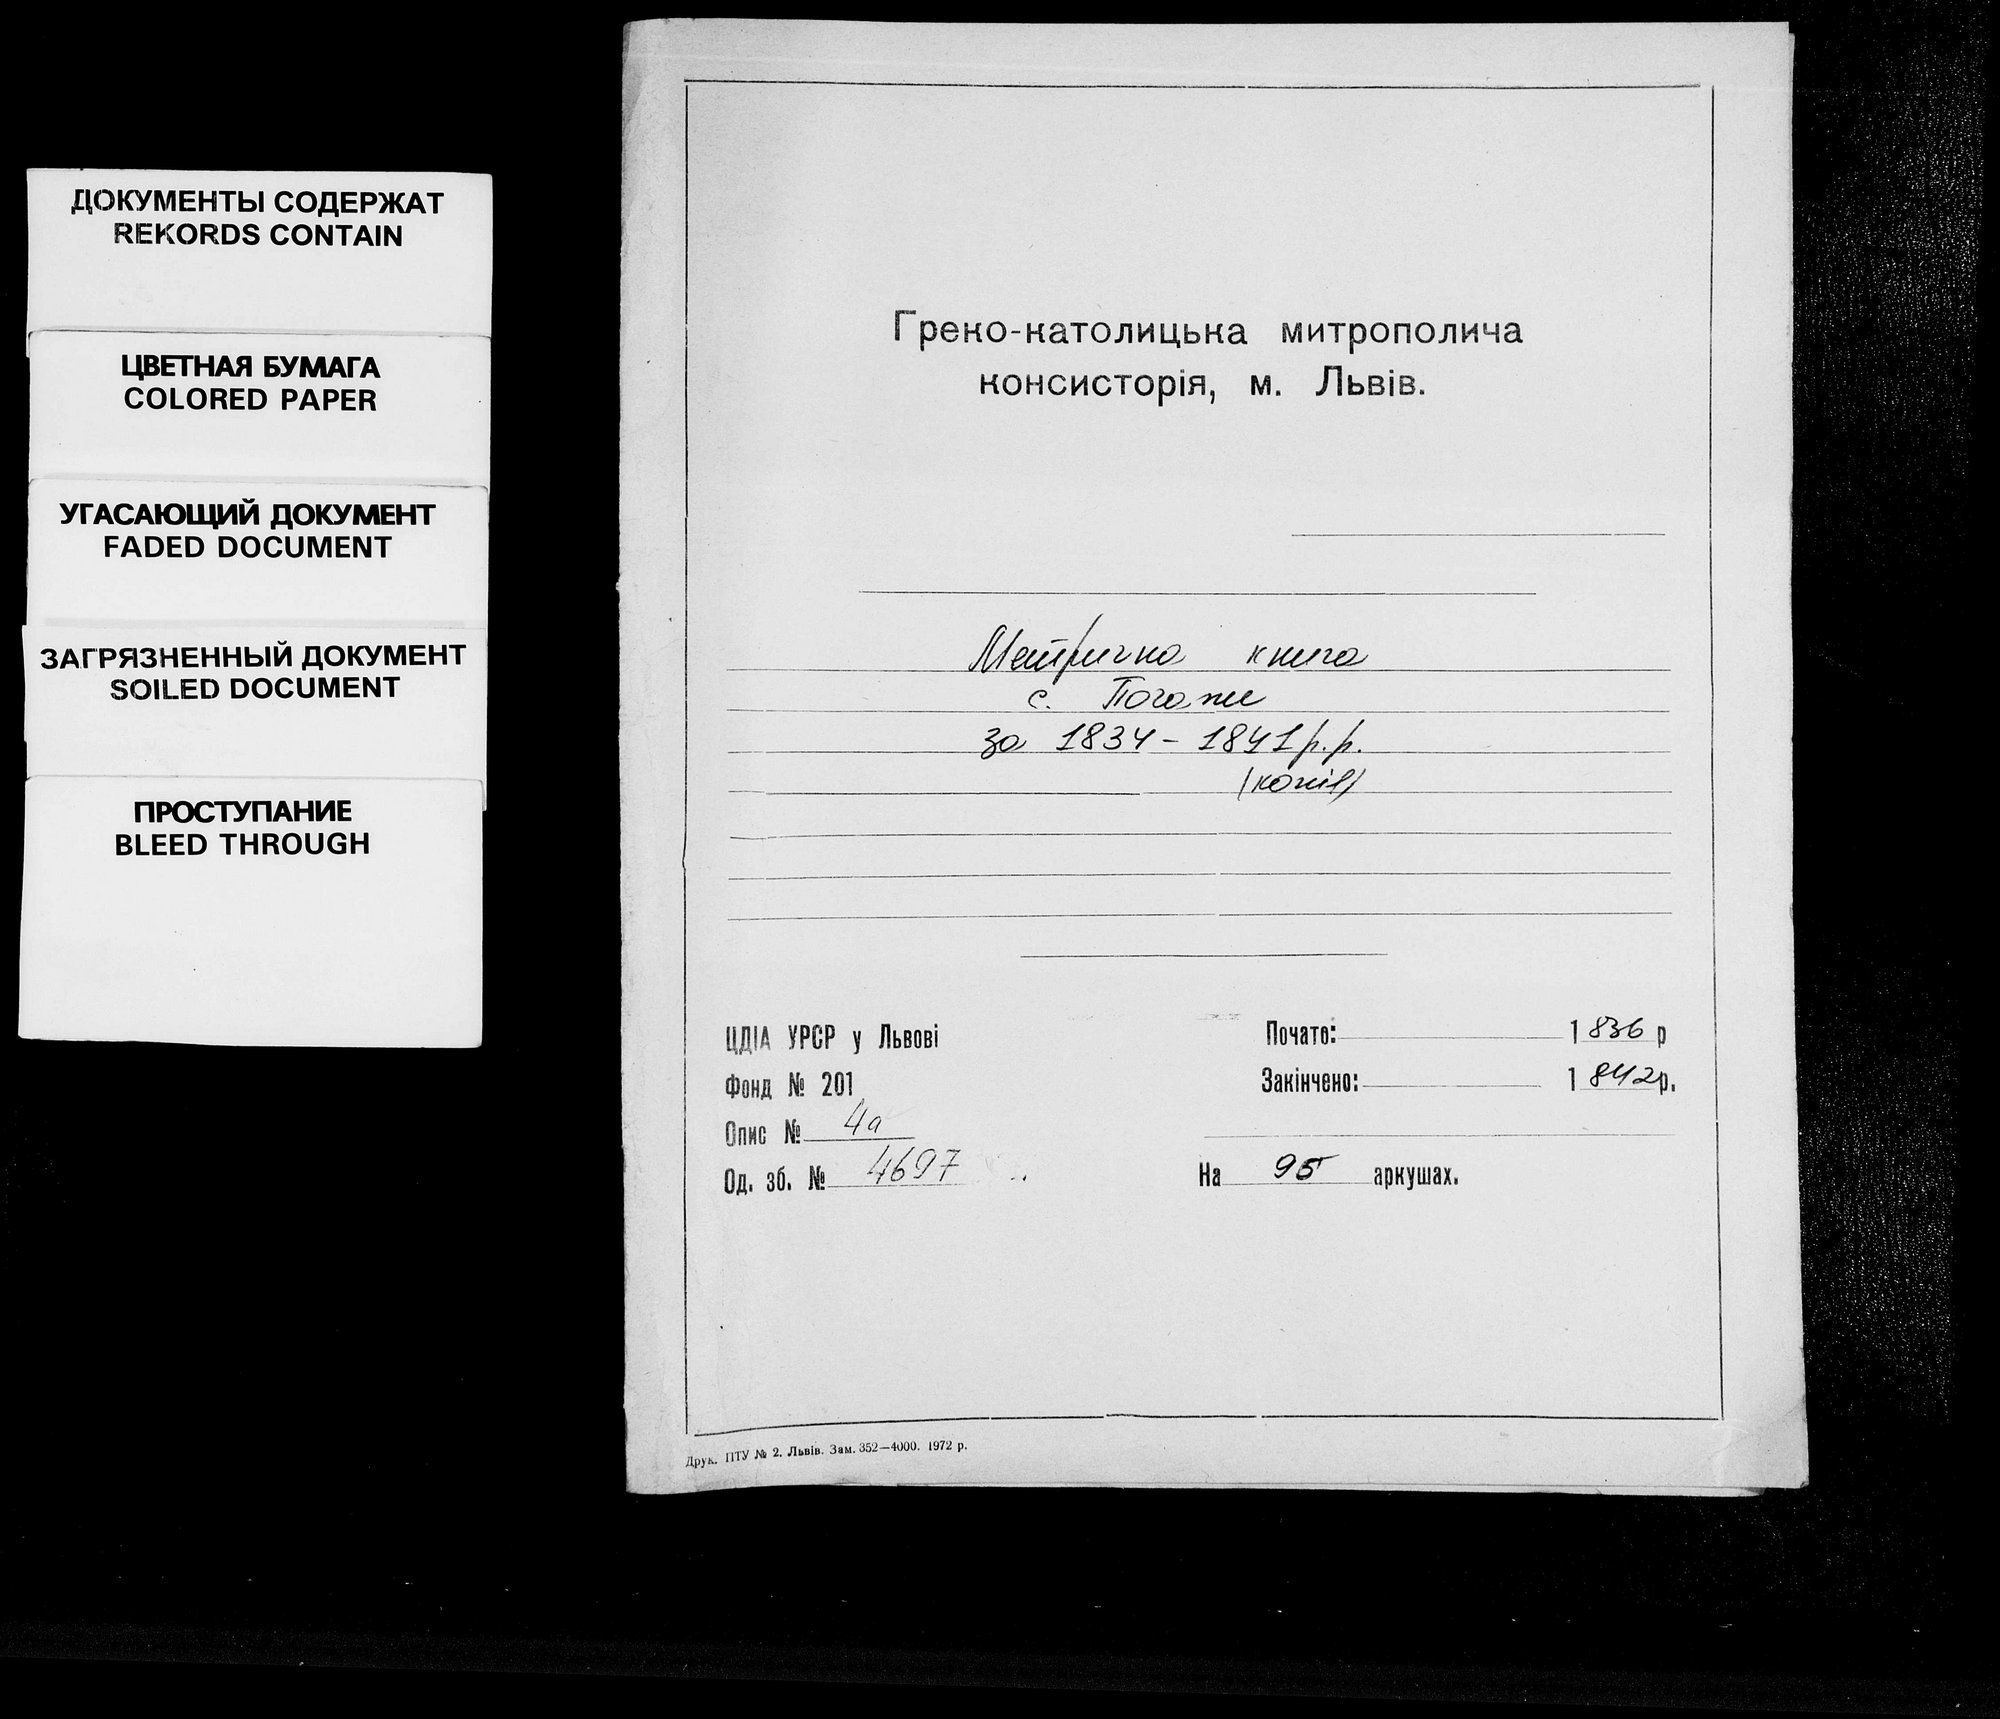 ДОКУМЕНТЫ СОДЕРЖАТ
REKORDS CONTAIN
ЦВЕТНАЯ БУМАГА
COLORED PAPER
УГАСАЮЩИЙ ДОКУМЕНТ
FADED DOCUMENT
ЗАГРЯЗНЕННЫЙ ДОКУМЕНТ
SOILED DOCUMENT
ПРОСТУПАНИЕ
BLEED THROUGH
Греко-католицька митрополича
консисторія, м. Львів.
Метрична книга
с.
за 1834-1841 р.р.
(копія)
ЦДІА УРСР у Львові
Фонд № 201
Опис № 4а
Од. зб. № 4697
Почато: 1836 р
Закінчено: 1842 р.
На 95 аркушах.
Друк. ПТУ № 2. Львів. Зам. 352—4000. 1972 р.